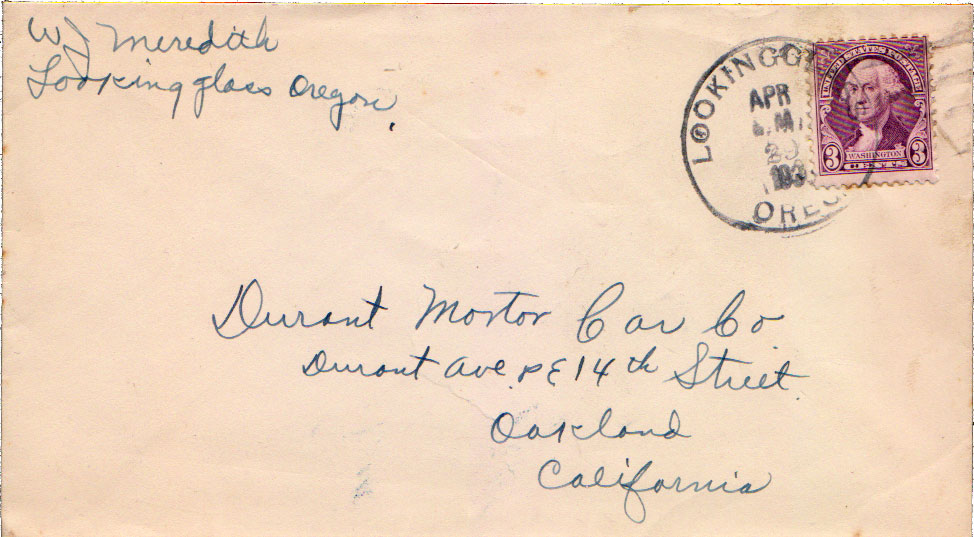 W J Meredith
Lookingglass Oregon
LOOKINGG
APR
29
193
OREG.
UNITED STATES POSTAGE
3 WASHINGTON 3
CENTS
Durant Mortor Car Co
Durant Ave. & E 14th Street
Oakland
California